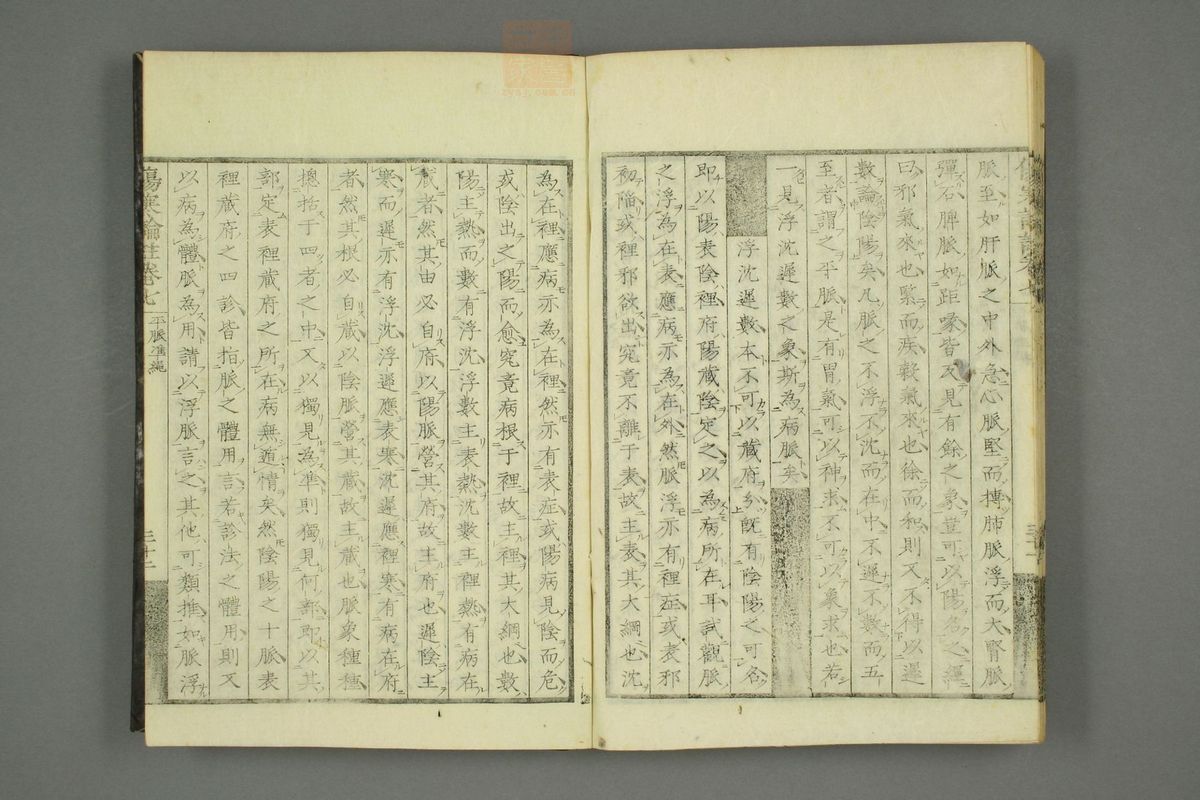 脈至如肝脈之中外急心脈堅而摶肺脈浮而大腎脈
彈石脾脈如距喙皆又見有餘之象豈可以陽名之經
曰邪氣來也緊而疾穀氣來也徐而和則又不得以遲
數論陰陽矣凡脈之不浮不沈而在中不遲不數而五
至者謂之平脈是有胃氣可以神求不可以象求也若
一見浮沈遲數之象斯為病脈矣
浮沈遲數本不可以藏府分既有陰陽之可名
即以陽表陰裡府陽藏陰定之以為病所在耳試觀脈
之浮為在表應病亦為在外然脈浮亦有裡症或表邪
初陷或裡邪欲出究竟不離于表故主表其大綱也沈
為在裡應病亦為在裡然亦有表症或陽病見陰而危
或陰出之陽而愈究竟病根于裡故主裡其大綱也數
陽主熱而數有浮沈浮數主表熱沈數主裡熱有病在
藏者然其由必自府以陽脈營其府故主府也遲陰主
寒而遲亦有浮沈浮遲應表寒沈遲應裡寒有病在府
者然其根必自藏以陰脈營其藏故主藏也脈象種種
總括于四者之中又以獨見為準則獨見何部即以其
部定表裡藏府之所在病無遁情矣然陰陽之十脈表
裡藏府之四診皆指脈之體用言若診法之體用則又
以病為體脈為用請以浮脈言之其他可類推如脈浮
傷寒論註卷七
平脈準繩
三十二